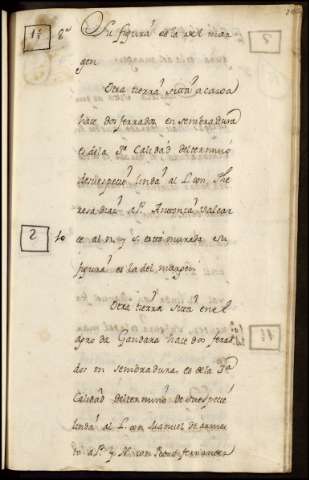 1½ 8ª Su figura es la del mar
gen
Otra tierra sita a casa
hace dos ferrados en sembradura
es de la 3ª Calidad del termino
de su especie linda al L. con The
resa Diaz a P. Antonia Valcar
ce al N. y S. está murada su
2 10 figura es la del margen
Otra tierra sita en el
agro de Gandara hace dos ferra
dos en sembradura es de la 3ª
Calidad del termino de su especie
linda al L. con Manuel de Arme
a P. y N. con Pedro Fernandez